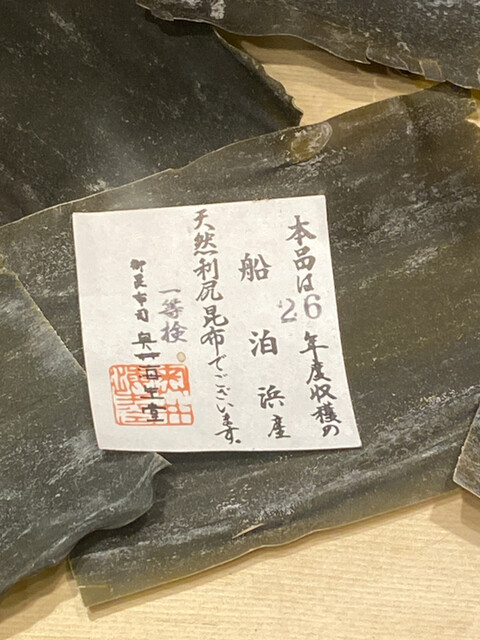 本品は26年度収獲の
船泊浜産
天然利尻昆布でございます。
一等検
御昆布司 奥井海生堂